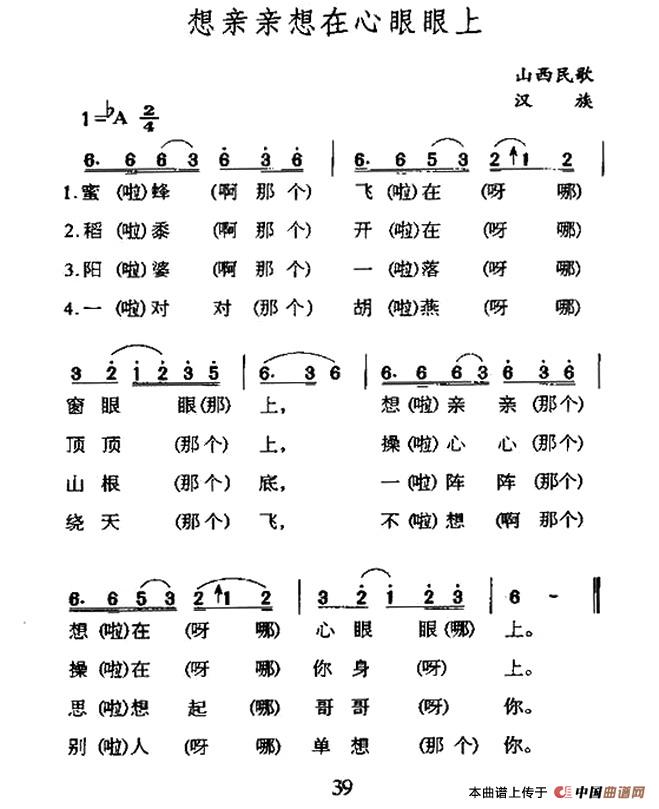 想亲亲想在心眼眼上
山西民歌
汉 族
1=♭A 2/4
6. 6 6 3 6 3 6 | 6. 6 5 3 2 ↑1 2 |
1.蜜(啦)蜂 (啊那个) 飞(啦)在(呀 哪)
2.稻(啦)黍 (啊那个) 开(啦)在(呀 哪)
3.阳(啦)婆 (啊那个) 一(啦)落(呀 哪)
4.一(啦)对 对(那个) 胡(啦)燕(呀 哪)
3 2 1 2 3 5 | 6. 3 6 | 6. 6 6 3 6 3 6 |
窗眼 眼(那)上, 想(啦)亲亲(那个)
顶顶 (那个)上, 操(啦)心心(那个)
山根 (那个)底, 一(啦)阵阵(那个)
绕天 (那个)飞, 不(啦)想(啊那个)
6. 6 5 3 2 ↑1 2 | 3 2 1 2 3 | 6 - ‖
想(啦)在 (呀 哪) 心眼 眼(哪) 上。
操(啦)在 (呀 哪) 你身 (呀) 上。
思(啦)想 起 (哪) 哥哥 (呀) 你。
别(啦)人 (呀 哪) 单想 (那个)你。
39
本曲谱上传于 中国曲谱网